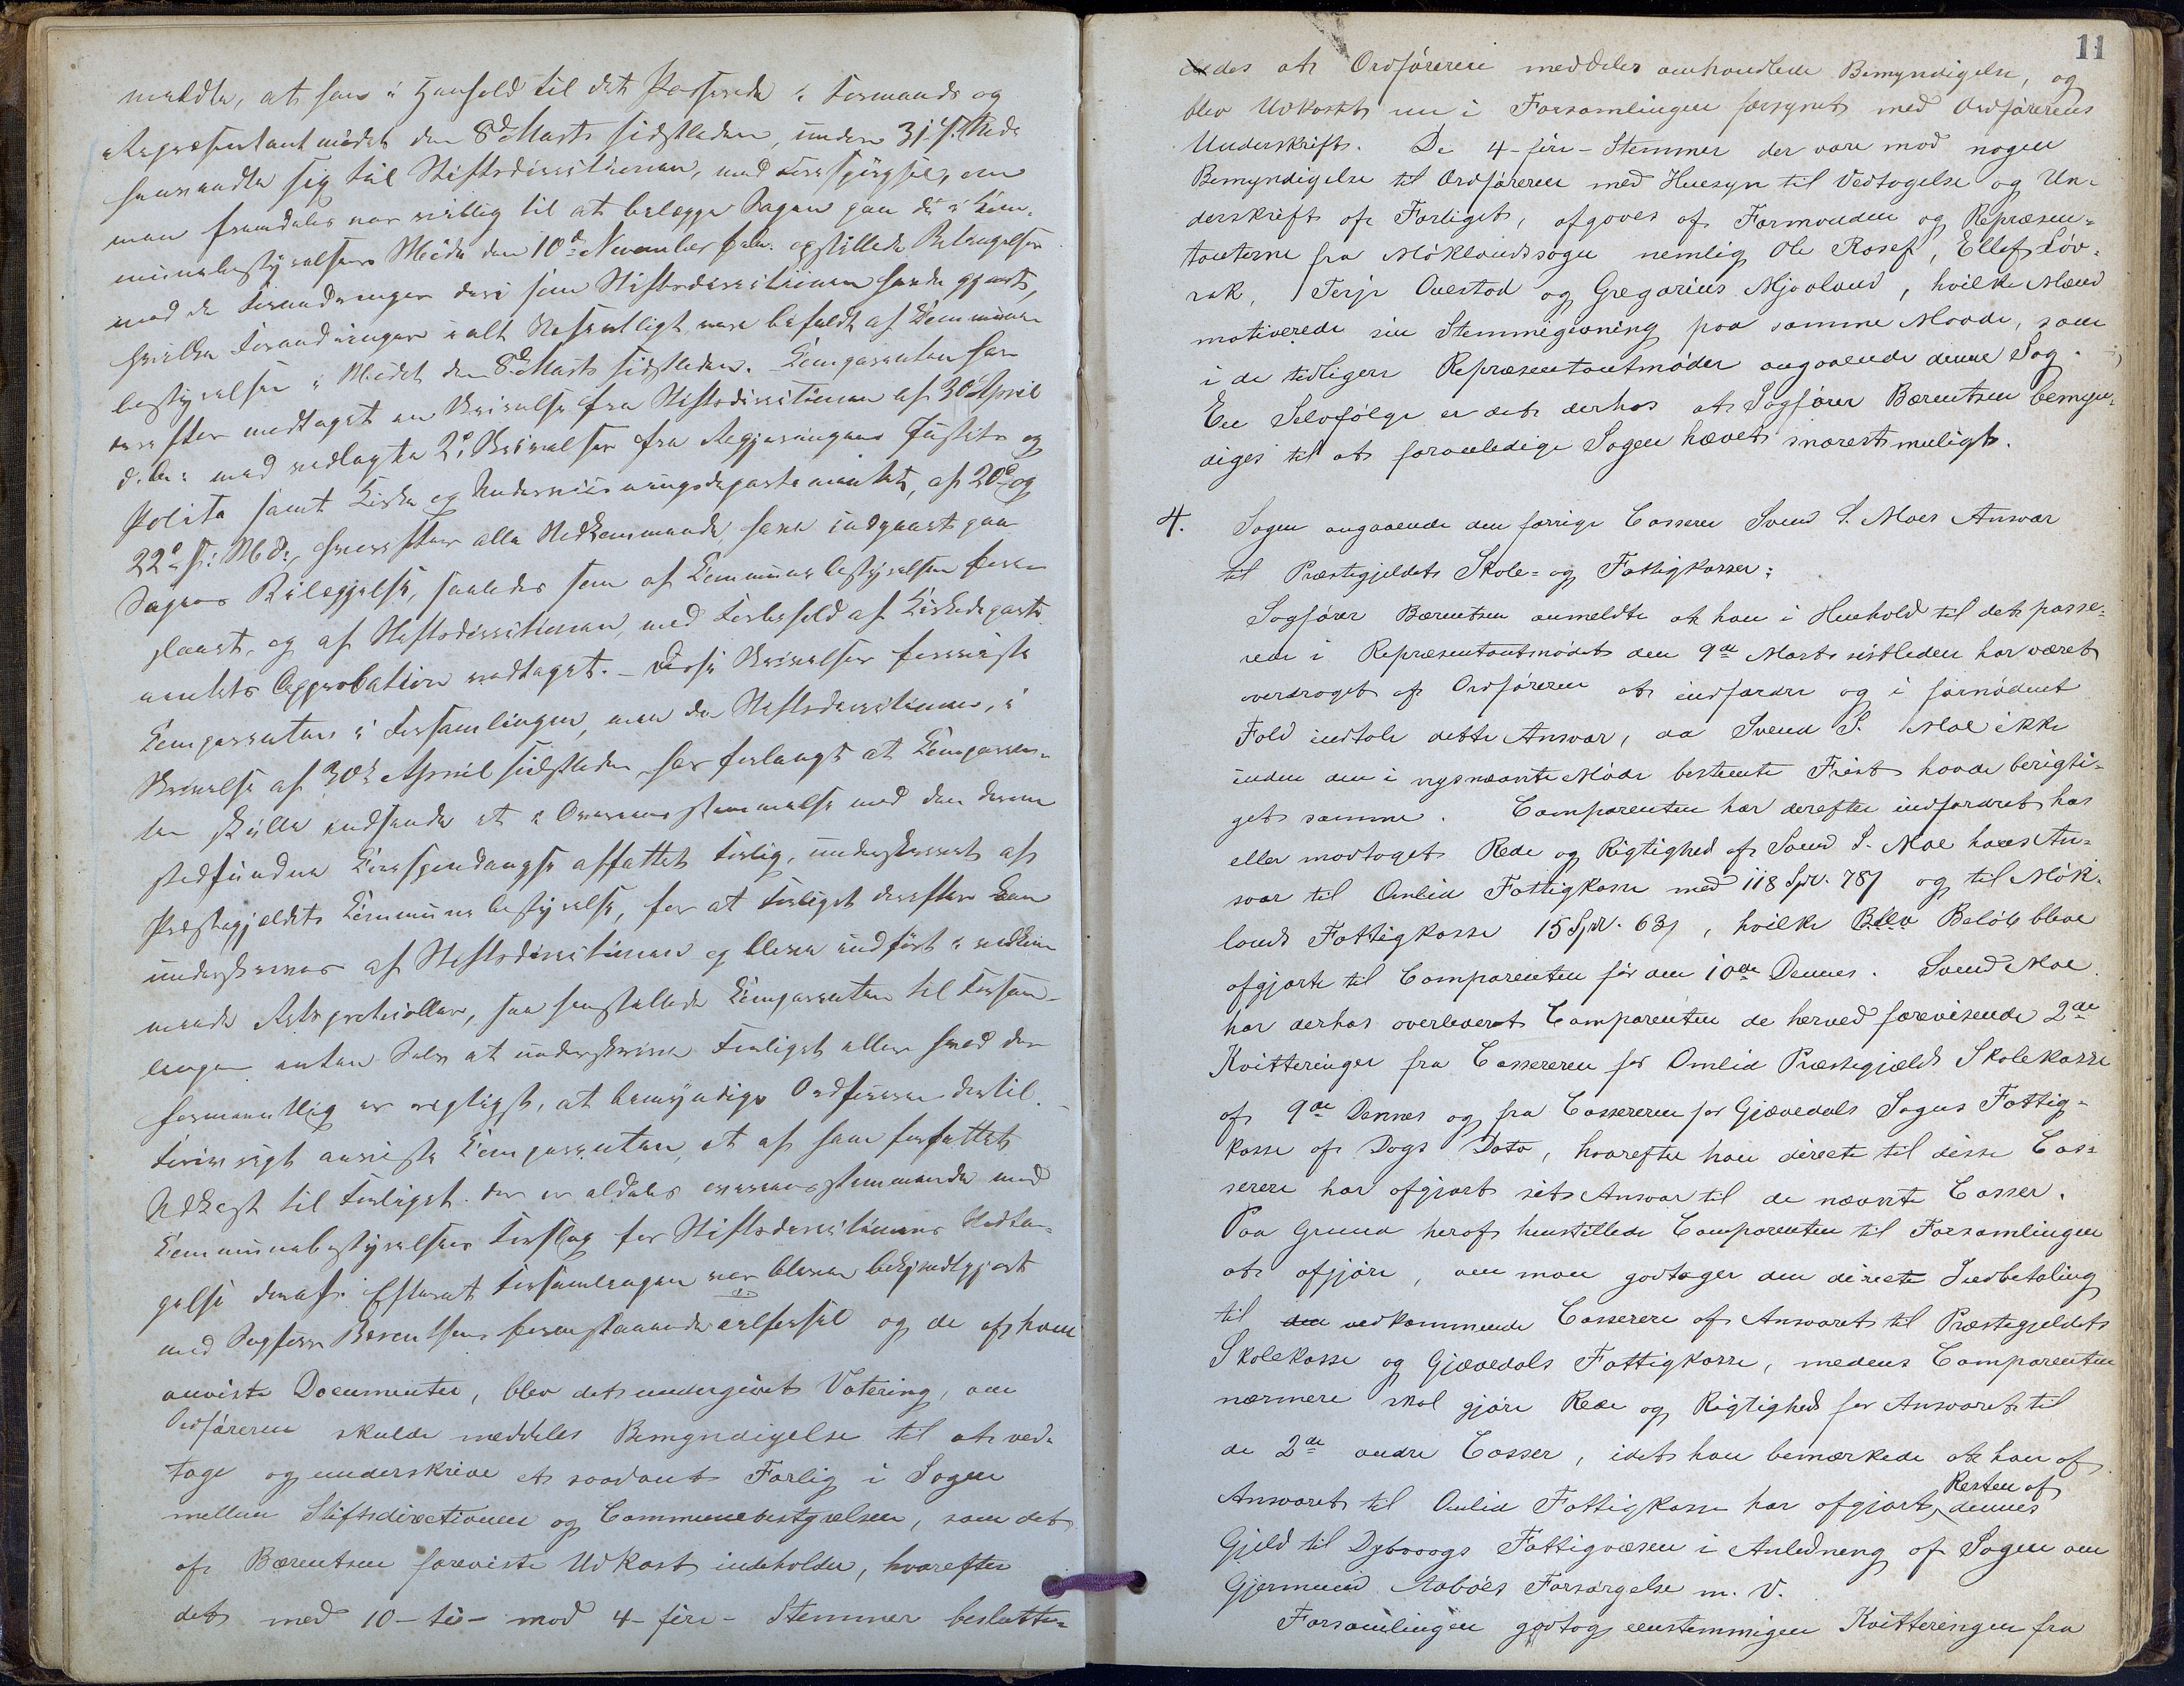 meldte, at han i Henhold til det Passerede i Formands og
Repræsentantmødet den 8de Marts sidstleden, under 31 f. Md.
henvendte sig til Stiftsdirectionen, med Forespørgsel, om
man fremdeles var villig til at bilægge Sagen paa de i Com-
munebestyrelsens Møde den 10de November f. A. opstillede Betingelser
med de Forandringer deri som Stiftsdirectionen havde gjort,
hvilke Forandringer i alt Væsentligt vare bifaldt af Commune-
bestyrelsen i Mødet den 8de Marts sidstleden. Comparenten har
derefter modtaget en Skrivelse fra Stiftsdirectionen af 30te April
d. A. med vedlagte 2de Skrivelser fra Regjeringens Justits og
Politi samt Kirke og Undervisningsdepartementet, af 20de og
22de s. Md., hvorefter alle Vedkommende have indgaaet paa
Sagens Bilæggelse, saaledes som af Communebestyrelsen fore-
slaaet, og af Stiftsdirectionen, med Forbehold af Kirkedeparte-
mentets Approbation vedtaget. – Disse Skrivelser foreviste
Comparenten i Forsamlingen, men da Stiftsdirectionen, i
Skrivelse af 30te April sidstleden har forlangt at Comparen-
ten skulle indsende et i Overensstemmelse med den derom
stedfundne Correspondangse affattet Forlig, underskrevet af
Præstegjeldets Communebestyrelse, for at Forliget derefter kan
underskrives af Stiftsdirectionen og blive indført i vedkom-
mende Retsprotocoller, saa henstillede Comparenten til Forsam-
lingen enten Selv at underskrive Forliget eller hvad der
formentlig er rigtigst, at bemyndige Ordføreren dertil.
Forøvrigt anviste Comparenten, et af ham forfattet
Udkast til Forliget. der er aldeles overensstemmende med
Communebestyrelsens Forslag for Stiftsdirectionens Vedta-
gelse deraf. Efterat Forsamlingen var bleven bekjendtgjort
med Sagfører Bærentsens forestaaende Forhold og de af ham
anviste Documenter, blev det undergivet Votering, om
Ordføreren skulde meddeles Bemyndigelse til at ved-
tage og underskrive et saadant Forlig i Sagen
mellem Stiftsdirectionen og Communebestyrelsen, som det
af Bærentsen foreviste Udkast indeholder, hvorefter
det med 10 – ti – mod 4 – fire – Stemmer beslutte-
des at Ordføreren meddeles omhandlede Bemyndigelse, og
blev Udkastet nu i Forsamlingen forsynet med Ordførerens
Underskrift. De 4 – fire – Stemmer der vare mod nogen
Bemyndigelse til Ordføreren med Hensyn til Vedtagelse og Un-
derskrift af Forliget, afgaves af Formanden og Repræsen-
tanterne fra Møklandssogn nemlig Ole Rosef, Ellef Løv-
rak, Terje Ouestad og Gregarius Mjaaland, hvilke Mænd
motiverede sin Stemmegivning paa samme Maade, som
i de tidligere Repræsentantmøder angaaende denne Sag.
En Selvfølge er det derhos at Sagfører Bærentsen bemyn-
diges til at foranledige Sagen hævet snarest muligt.
4. Sagen angaaende den forrige Casserer Svend S. Moes Ansvar
til Præstegjeldets Skole- og Fattigkasser:
Sagfører Bærentsen anmeldte at han i Henhold til det passe-
rede i Repræsentantmødet den 9de Marts sistleden har været
overdraget af Ordføreren at indfordre og i fornødent
Fald indtale dette Ansvar, da Svend S. Moe ikke
inden den i nysnævnte Møde bestemte Frist havde berigti-
get samme. Comparenten har derefter indfordret hos
eller modtaget Rede og Rigtighed af Svend S. Moe hans An-
svar til Omlid Fattigkasse med 118 Spd. 78 s og til Møk-
lands Fattigkasse 15 Spd. 63 s, hvilke Beløb bleve
afgjorte til Comparenten før den 10de Dennes. Svend Moe
har derhos overleveret Comparenten de herved forevisende 2de
Kvitteringer fra Cassereren for Omlid Præstegjælds Skolekasse
af 9de Dennes og fra Cassereren for Gjøvedals Sogns Fattig-
kasse af Dags Dato, hvorefter han directe til disse Cas-
serere har afgjort sit Ansvar til de nævnte Casser.
Paa Grund heraf henstillede Comparenten til Forsamlingen
at afgjøre, om man godtager den directe Indbetaling
til vedkommende Casserere af Ansvaret til Præstegjeldets
Skolekasse og Gjøvedals Fattigkasse, medens Comparenten
nærmere skal gjøre Rede og Rigtighed for Ansvaret til
de 2de andre Casser, idet han bemærkede at han af
Ansvaret til Omlid Fattigkasse har afgjort Resten af dennes
Gjeld til Dybvaags Fattigvæsen i Anledning af Sagen om
Gjermund Aabøes Forsørgelse m. V.
Forsamlingen godtog eenstemmigen Kvitteringen fra
11